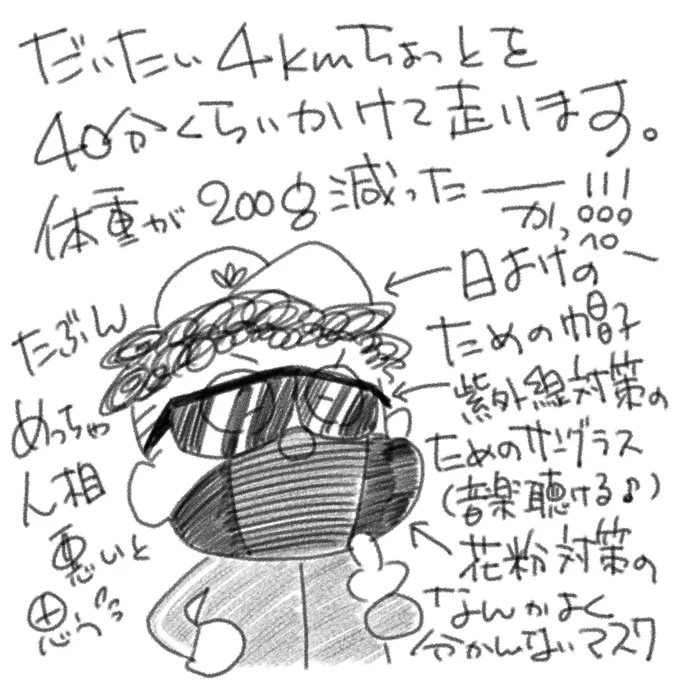 だいたい4kmちょっとを
40分くらいかけて走ります。
体重が200g減ったー!!!
かっ
日よけの
ための帽子
紫外線対策の
ためのサングラス
(音楽聴ける♪)
花粉対策の
なんかよく
分かんないマスク
たぶん
めっちゃ
人相
悪いと
思う